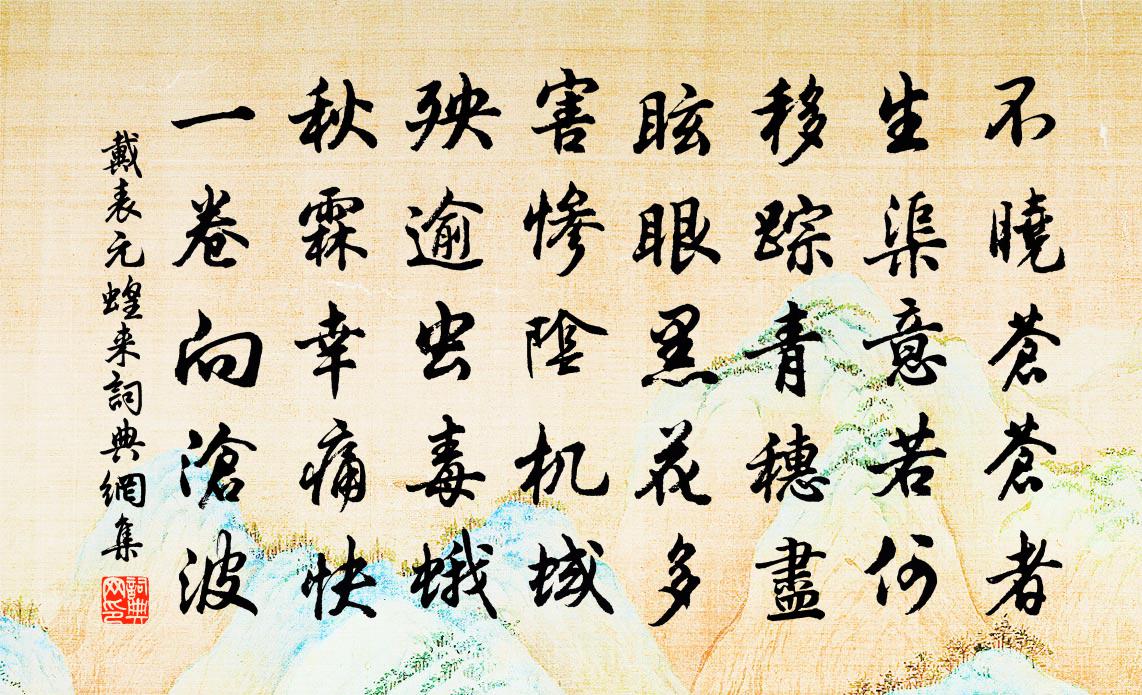 不曉蒼蒼者
生渠意若何
移踪青穗盡
眩眼黑花多
害慘陰机域
殃逾虫毒蛾
秋霖幸痛快
一卷向滄波
戴表元蝗来詞典網集
詞典网印